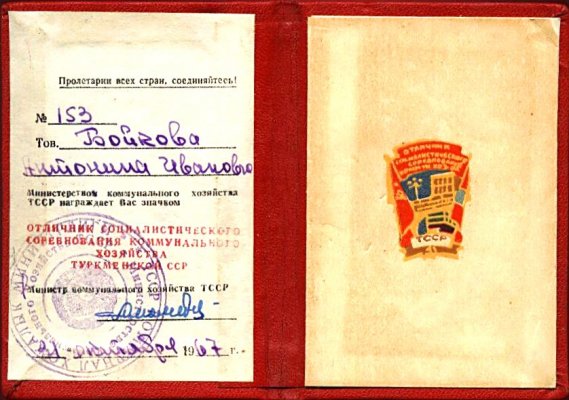 Пролетарии всех стран, соединяйтесь!
№ 153
Тов. Бойкова
Антонина Ивановна
Министерством коммунального хозяйства
ТССР награждает Вас значком
ОТЛИЧНИК СОЦИАЛИСТИЧЕСКОГО
СОРЕВНОВАНИЯ КОММУНАЛЬНОГО
ХОЗЯЙСТВА
ТУРКМЕНСКОЙ ССР
Министр коммунального хозяйства ТССР
октября 1967 г.
ОТЛИЧНИК
СОЦИАЛИСТИЧЕСКОГО
СОРЕВНОВАНИЯ
ТССР